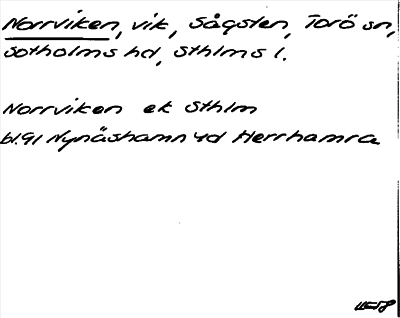 Norrviken, vik, Sågsten, Torö sn,
Sotholms hd, Sthlms l.
Norrviken ek Sthlm
bl.91 Nynäshamn 4d Herrhamra